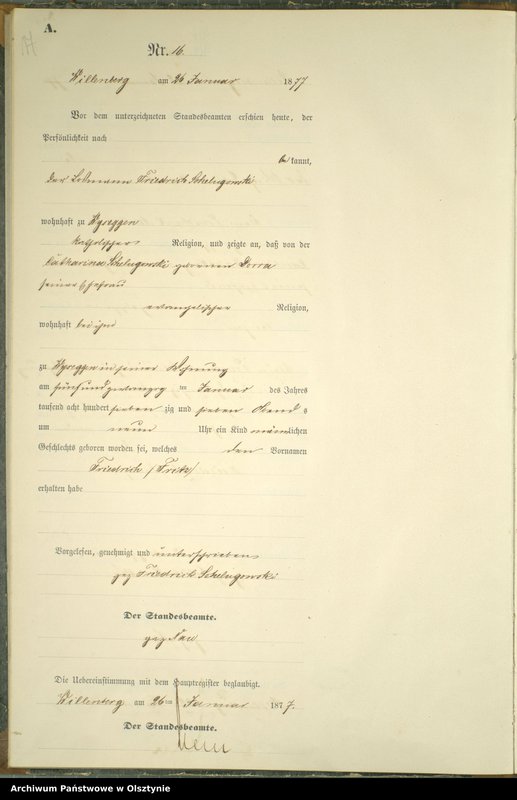 A.
Nr. 16.
Willenberg am 26 Januar 1877
Vor dem unterzeichneten Standesbeamten erschien heute, der
Persönlichkeit nach
bekannt,
der Losmann Friedrich Schelugowski
wohnhaft zu Wyseggen
katholischer Religion, und zeigte an, daß von der
Catharina Schelugowski geborenen
seiner Ehefrau
evangelischer Religion,
wohnhaft bei ihm
zu Wyseggen in seiner Wohnung
am fünfundzwanzigsten Januar des Jahres
tausend acht hundert siebenzig und sieben Abends
um neun Uhr ein Kind männlichen
Geschlechts geboren worden sei, welches den Vornamen
Friedrich /Fritz/
erhalten habe
Vorgelesen, genehmigt und unterschrieben
gez Friedrich Schelugowski
Der Standesbeamte.
gez
Die Uebereinstimmung mit dem Hauptregister beglaubigt.
Willenberg am 26ten Januar 1877.
Der Standesbeamte.
Archiwum Państwowe w Olsztynie